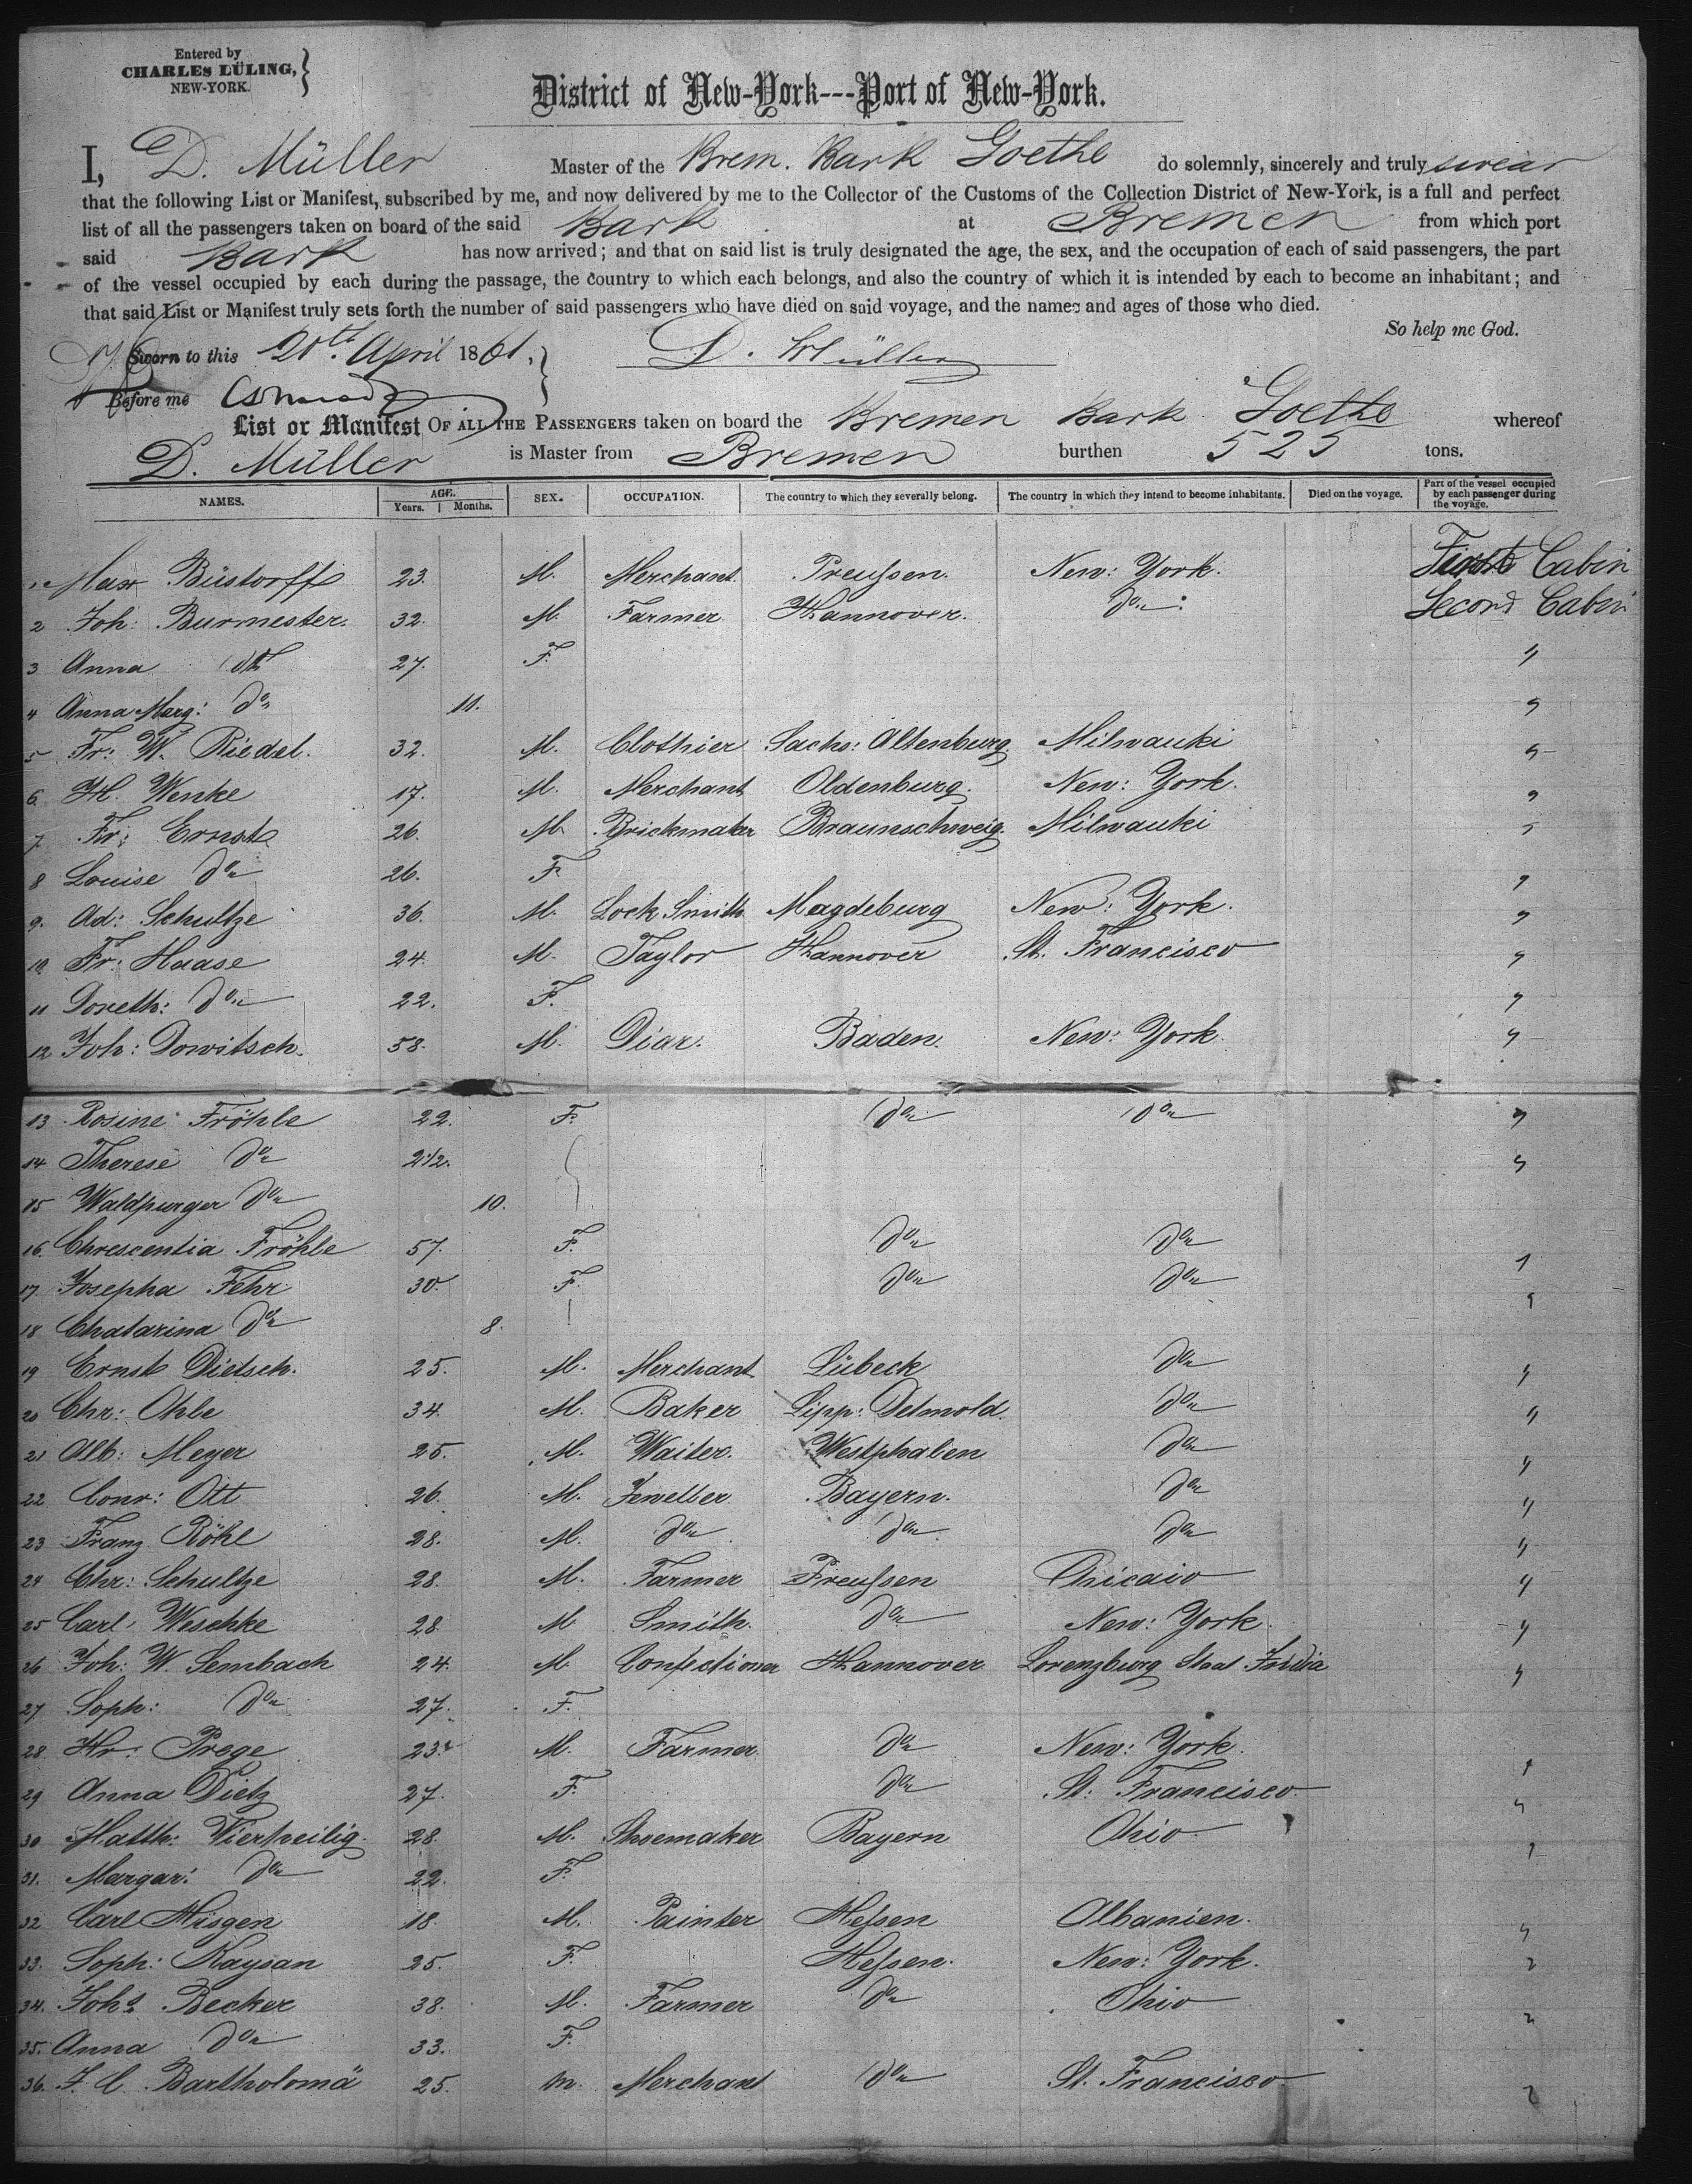 Entered by
CHARLES LÜLING,
NEW-YORK.
District of New-York---Port of New-York.
I, D. Müller Master of the Brem. Bark Goethe do solemnly, sincerely and truly swear
that the following List or Manifest, subscribed by me, and now delivered by me to the Collector of the Customs of the Collection District of New-York, is a full and perfect
list of all the passengers taken on board of the said Bark at Bremen from which port
said Bark has now arrived; and that on said list is truly designated the age, the sex, and the occupation of each of said passengers, the part
of the vessel occupied by each during the passage, the country to which each belongs, and also the country of which it is intended by each to become an inhabitant; and
that said List or Manifest truly sets forth the number of said passengers who have died on said voyage, and the names and ages of those who died.
So help me God.
Sworn to this 20th April 1861. D. Müller
Before me
List or Manifest OF ALL THE PASSENGERS taken on board the Bremen Bark Goethe whereof
D. Müller is Master from Bremen burthen 525 tons.
NAMES. AGE. Years. Months. SEX. OCCUPATION. The country to which they severally belong. The country in which they intend to become inhabitants. Died on the voyage. Part of the vessel occupied by each passenger during the voyage.
1 Max Büstorff 23. M. Merchant. Preußen. New: York. First Cabin
2 Joh: Burmester. 32. M. Farmer. Hannover. do. Second Cabin
3 Anna do 27. F. "
4 Anna Marg: do 11. "
5 Fr: W. Riedel. 32. M. Clothier Sachs: Altenburg. Milwauki "
6. H. Wenke 17. M. Merchant Oldenburg. New: York. "
7 Fr: Ernst 26. M. Brickmaker Braunschweig. Milwauki "
8 Louise do 26. F. "
9. Ad: Schultze 36. M. Lock Smith Magdeburg New: York. "
10 Fr: Haase 24. M. Taylor Hannover St. Francisco "
11 Doreth: do 22. F. "
12 Joh: Dowitsch. 58. M. Diar. Baden. New: York. "
13 Rosine Fröhle 22. F. do do "
14 Therese do 2 1/2. "
15 Waldpurger do 10.
16. Chrescentia Fröhle 57. F. do do "
17 Josepha Fehr 30. F. do do "
18 Chatarina do 8.
19 Ernst Dietsch. 25. M. Merchant Lübeck do "
20 Chr: Ohle 34. M. Baker Lipp: Detmold. do "
21 Alb: Meyer 25. M. Waiter. Westphalen do "
22 Conr: Ott 26. M. Jeweller Bayern. do "
23 Franz Röhl 28. M. do do do "
24 Chr: Schultze 28. M. Farmer Preußen Chicaio "
25 Carl Weschke 28 M Smith. do New: York. "
26 Joh: W. Sembach 24. M. Confectioner Hannover Lorenzburg Staat India "
27 Soph: do 27. F.
28 Hr: Prege 23. M. Farmer. do New: York. "
29 Anna Dietz 27. F. do St: Francisco. "
30 Matth: Vierheilig. 28. M. Shoemaker Bayern Ohio "
31. Margar: do 22. F.
32 Carl Hisgen 18. M. Painter Heßen Albanien. "
33. Soph: Kaysan 25. F. Heßen. New: York. "
34. Johs Becker 38. M. Farmer do Ohio "
35. Anna do 33. F.
36. F. C. Bartholomä 25. m. Merchant do St. Francisco "